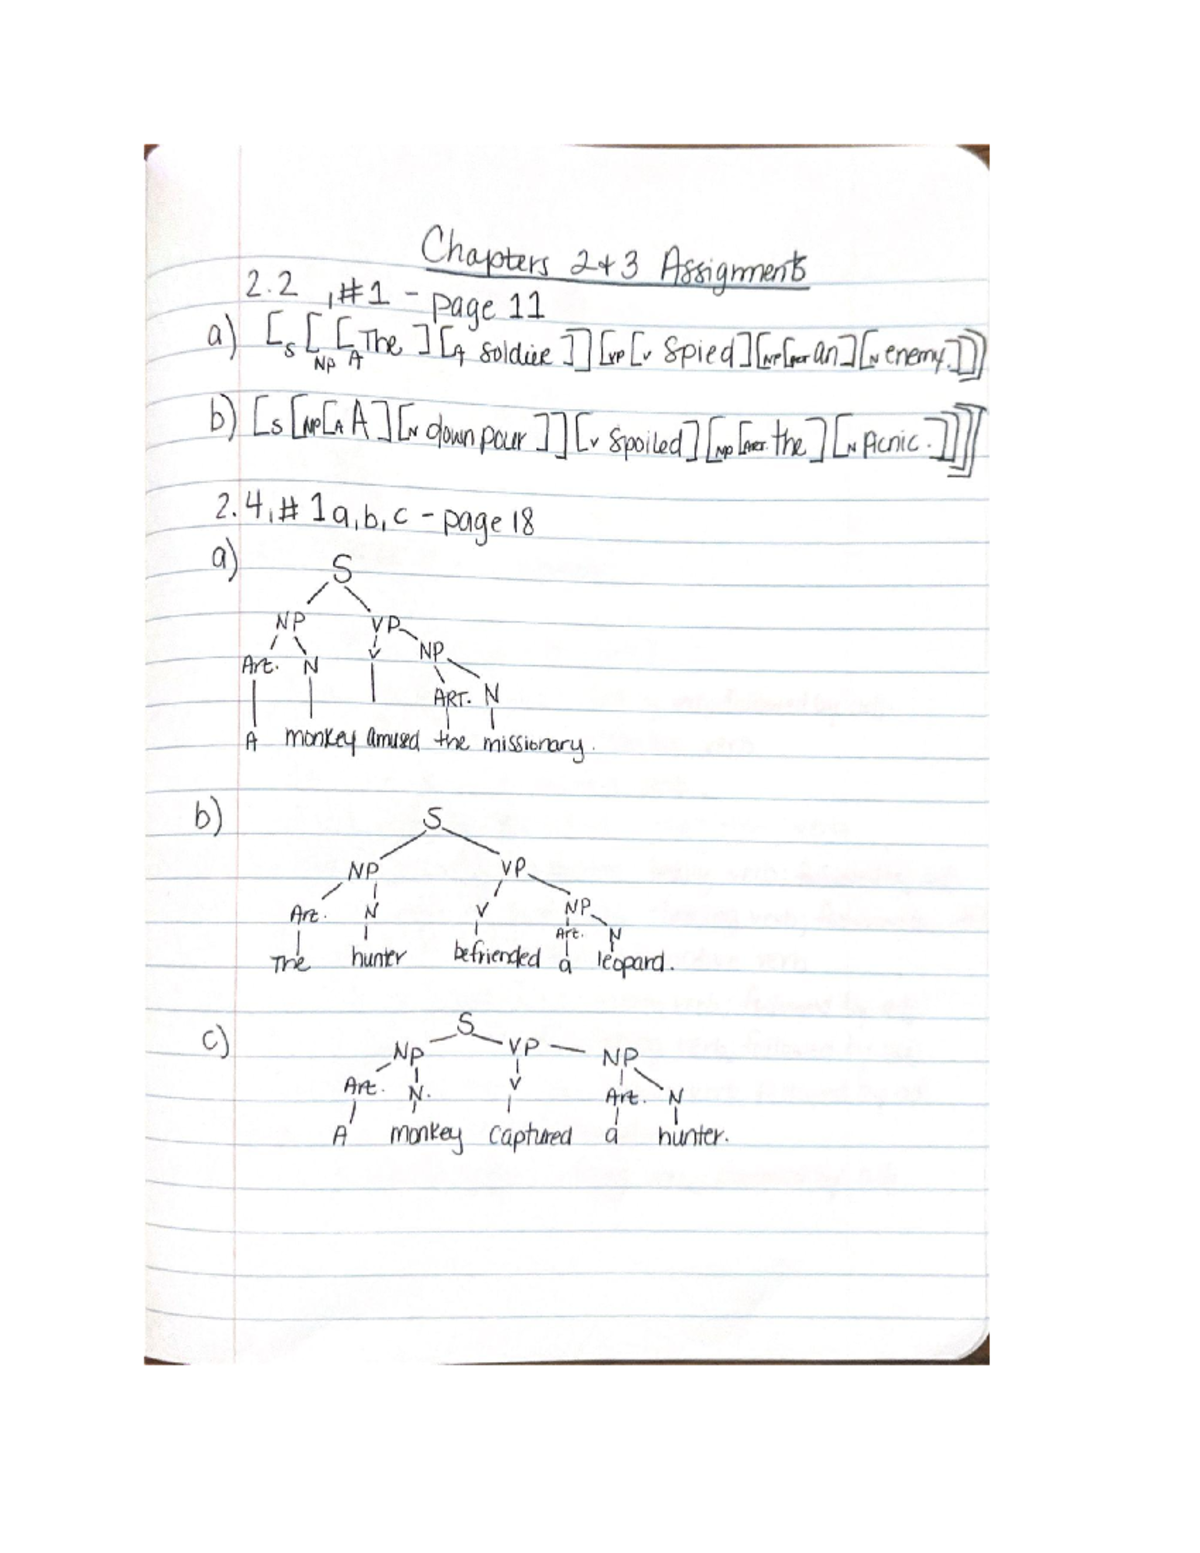 Chapters 2+3 Assignments
2.2 ,#1 - page 11
a) [S [NP [A The ] [A soldire ]] [VP [V Spied] [NP [Art an] [N enemy.]]]
b) [S [NP [A A] [N downpour ]] [V spoiled] [NP [Art. the] [N Picnic.]]]]
2.4, # 1a,b,c - page 18
a)
S
NP VP
Art. N V NP
ART. N
A monkey amused the missionary.
b)
S
NP VP
Art. N V NP
Art. N
The hunter befriended a leopard.
c)
S
NP VP NP
Art. N. V Art. N
A monkey captured a hunter.